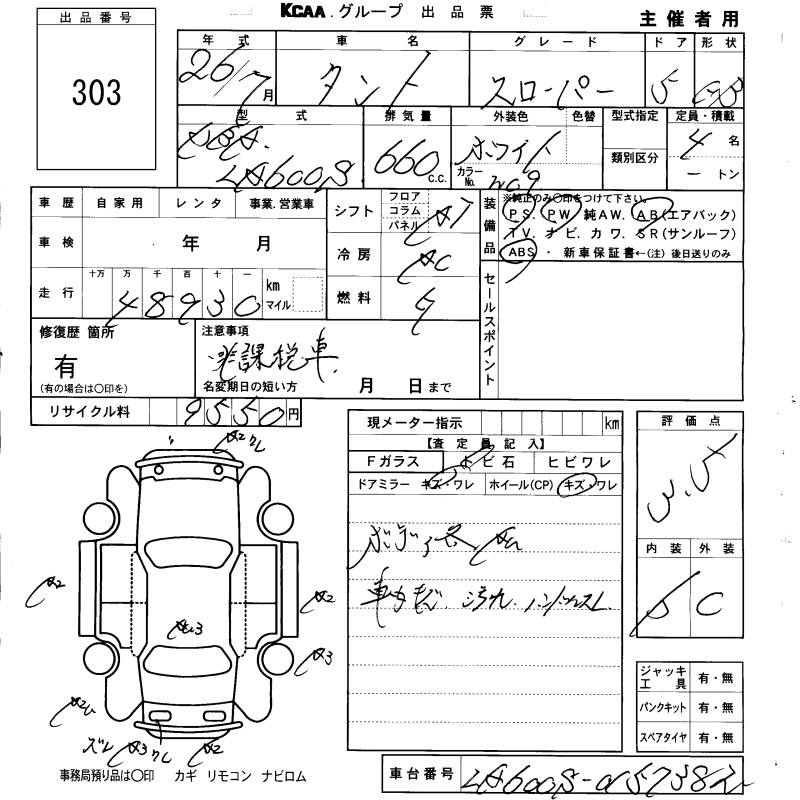 KCAA.グループ 出品票
主催者用
出品番号
303
年式 車名 グレード ドア 形状
26/7月 タント スローパー 5
型式 排気量 外装色 色替 型式指定 定員・積載
DBA
LA600S 660c.c. ホワイト カラーNo. W09 類別区分 4名
ートン
車歴 自家用 レンタ 事業.営業車
車検 年 月
走行 十万 万 千 百 十 一
48930 km マイル
シフト フロア コラム パネル AT
冷房 AC
燃料 G
装備品
※純正のみ○印をつけて下さい。
PS. PW. 純AW. AB(エアバック)
TV. ナビ. カワ. SR(サンルーフ)
ABS・新車保証書←(注)後日送りのみ
セールスポイント
修復歴 箇所
有
(有の場合は○印を)
注意事項
非課税車
名変期日の短い方 月 日まで
リサイクル料 9550円
現メーター指示 km
【査定員記入】
Fガラス トビ石 ヒビワレ
ドアミラー キズ・ワレ ホイール(CP) キズ・ワレ
ボディ各
評価点
3.5
内装 外装
D C
ジャッキ工具 有・無
パンクキット 有・無
スペアタイヤ 有・無
A2ワレ
A2
A2
A3
ズレ
A2
事務局預り品は○印 カギ リモコン ナビロム
車台番号 LA600S-